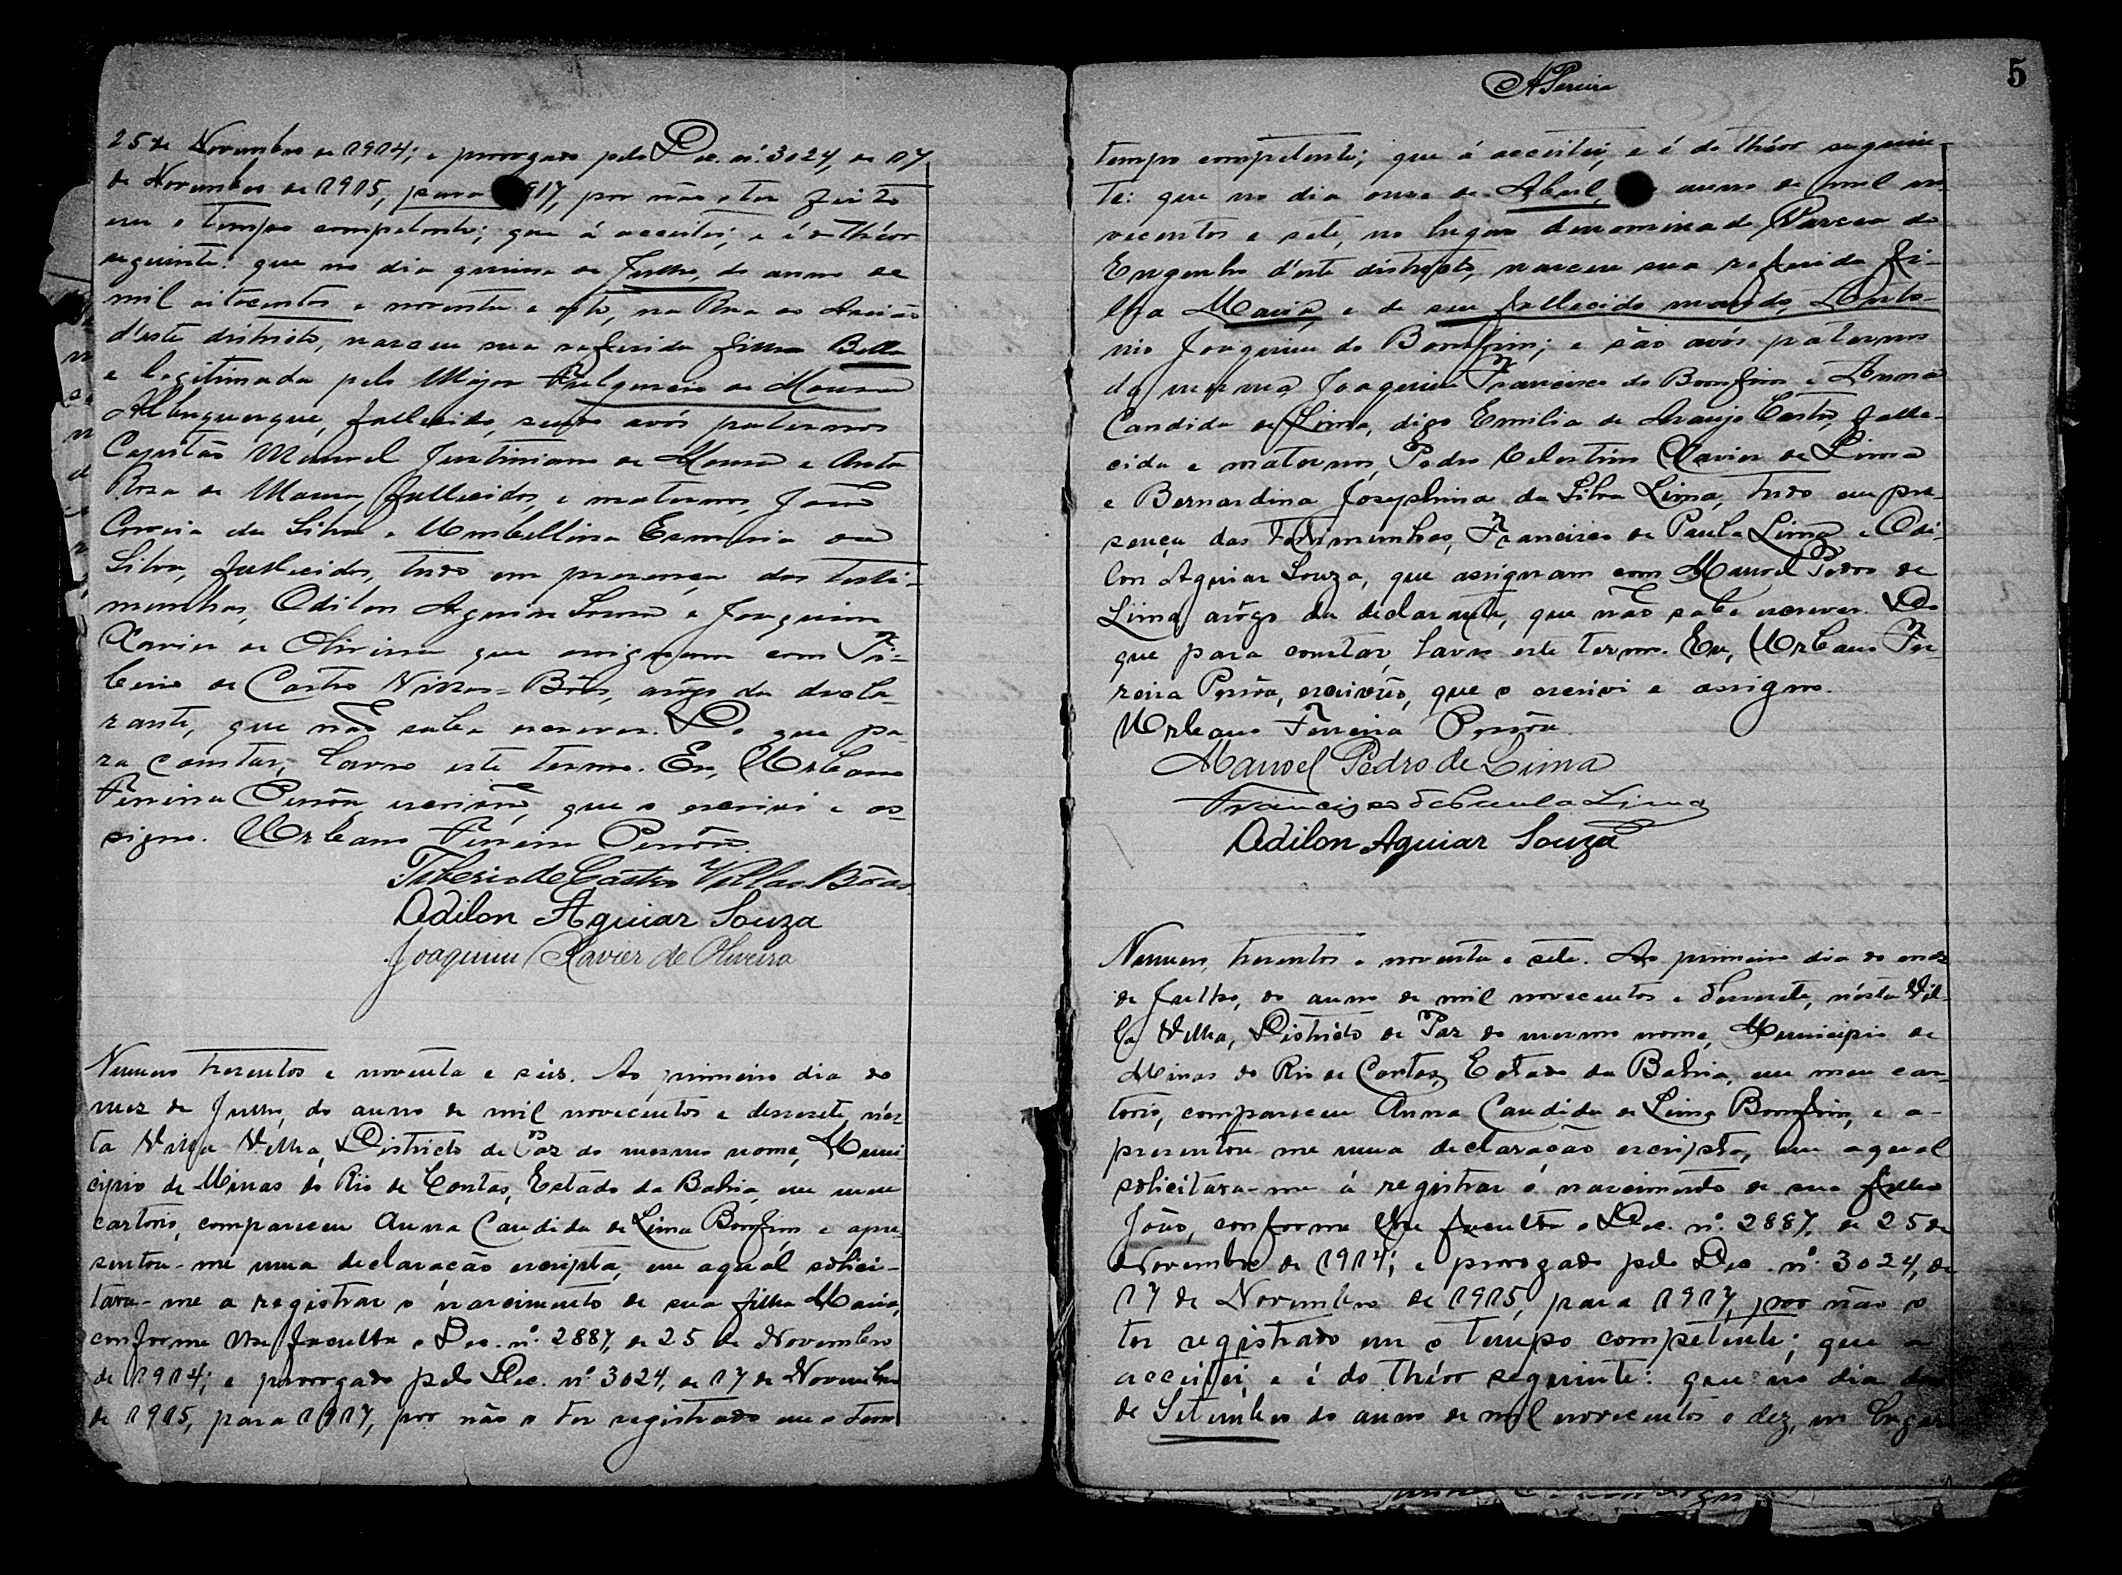 25 de Novembro de 1914; e prorogado pelo Dec. nº. 3024, de 17
de Novembro de 1915, para 1917, por não o ter feito
em o tempo competente; que á acceitei, e é do théor
seguinte: que no dia quinze de Julho, do anno de
mil oitocentos e noventa e oito, na Rua do
d'este districto, nasceu sua referida filha Bella
e legitimada pelo Major Fulgencio de Moura
Albuquerque, fallecido, seus avós paternos
Capitão Manoel Justiniano de Moura e Anta
Roza de Moura, fallecidos, e maternos, João
Correia da Silva e Umbellina Esmeria da
Silva, fallecidos, tudo em presença das teste-
munhas, Odilon Aguiar Souza e Joaquim
Xavier de Oliveira que assignam com Ti-
berio de Castro Villas-Bôas, arôgo da decla-
rante, que não sabe escrever. Do que pa-
ra constar, lavro este termo. Eu, Urbano
Ferreira Pessôa, escrivão, que o escrivi e as-
signo. Urbano Ferreira Pessôa.
Tiberio de Castro Villas Bôas
Odilon Aguiar Souza
Joaquim Xavier de Oliveira
Numero trezentos e noventa e seis. Ao primeiro dia do
mez de Julho, do anno de mil novecentos e dezesete, nés-
ta Villa Velha, Districto de Paz do mesmo nome, Muni-
cipio de Minas do Rio de Contas, Estado da Bahia, em meu
cartorio, compareceu Anna Candida de Lima Bomfim e apre-
sentou-me uma declaração escripta, em aqual solici-
tava-me a registrar o nascimento de sua filha Maria,
conforme lhe faculta o Dec. nº. 2887, de 25 de Novembro
de 1914; e prorogado pelo Dec. nº 3024, de 17 de Novembro
de 1915, para 1917, por não o ter registrado em o tem
APereira
5
tempo competente; que á acceitei, e é do théor seguin-
te: que no dia onze de Abril, anno de mil no
vecentos e sete, no lugar denominado Varzea do
Engenho d'este districto, nasceu sua referida fi-
lha Maria, e de seu fallecido marido, Anto-
nio Joaquim do Bomfim; e são avós paternos
da mesma, Joaquim Francisco do Bomfim e Anna
Candida de Lima, digo Emilia de Araujo Castro, falle-
cida e maternos, Pedro Celestino Xavier de Lima
e Bernardina Josephina da Silva Lima, tudo em pre-
sença das testimunhas, Francisco de Paula Lima e Odi-
lon Aguiar Souza, que assignam com Manoel Pedro de
Lima, arôgo da declarante, que não sabe escrever. Do
que para constar, lavro este termo. Eu, Urbano Fer-
reira Pessôa, escrivão, que o escrivi e assigno.
Urbano Ferreira Pessôa.
Manoel Pedro de Lima
Francisco de Paula Lima
Odilon Aguiar Souza
Numero, trezentos e noventa e sete. Ao primeiro dia do mez
de Julho, do anno de mil novecentos e dezesete, nésta Vil-
la Velha, Districto de Paz do mesmo nome, Municipio de
Minas do Rio de Contas, Estado da Bahia, em meu car-
torio, compareceu Anna Candida de Lima Bomfim, e a-
presentou-me uma declaração escripta, em aqual
solicitava-me á registrar o nascimento de seu filho
João, conforme lhe faculta o Dec. nº. 2887, de 25 de
Novembro de 1914; e prorogado pelo Dec. nº. 3024, de
17 de Novembro de 1915, para 1917, por não o
ter registrado em o tempo competente; que a
acceitei, e é do théor seguinte: que no dia
de Setembro do anno de mil novecentos e dez, no lugar